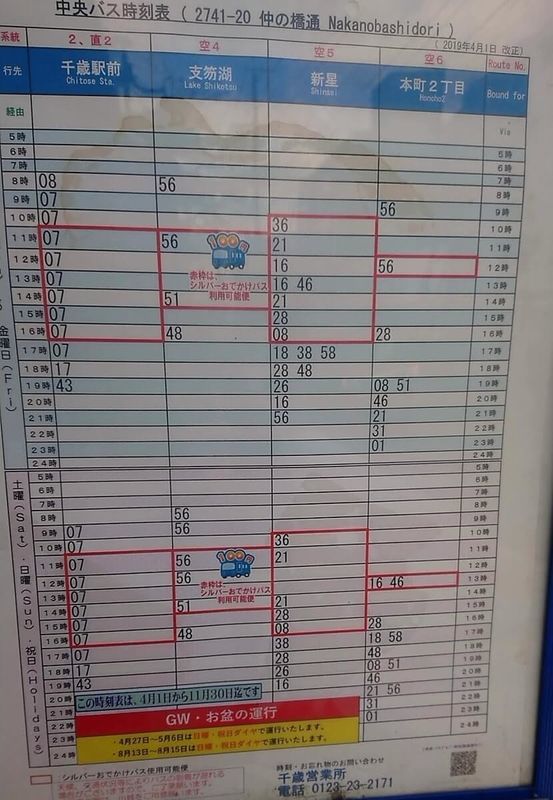 中央バス時刻表 ( 2741-20 仲の橋通 Nakanobashidori )
( 2019年4月1日 改正)
系統 2、直2 空4 空5 空6 Route No.
行先 千歳駅前 支笏湖 新星 本町2丁目 Bound for
Chitose Sta. Lake Shikotsu Shinsei Honcho2
経由 Via
5時 5時
6時 6時
7時 7時
8時 08 56 8時
9時 07 56 9時
10時 07 36 10時
11時 07 56 21 11時
12時 07 16 56 12時
13時 07 16 46 13時
14時 07 51 21 14時
15時 07 28 15時
16時 07 48 08 28 16時
17時 07 18 38 58 17時
18時 17 28 48 18時
19時 43 26 08 51 19時
20時 16 46 20時
21時 56 21 21時
22時 31 22時
23時 01 23時
24時 24時
100
赤枠は、
シルバーおでかけバス
利用可能便
金曜日(Fri)
土曜(Sat)・日曜(Sun)・祝日(Holidays)
5時 5時
6時 6時
7時 7時
8時 56 8時
9時 07 56 9時
10時 07 36 10時
11時 07 56 21 11時
12時 07 56 12時
13時 07 16 46 13時
14時 07 51 21 14時
15時 07 28 15時
16時 07 48 08 28 16時
17時 07 38 18 58 17時
18時 17 28 48 18時
19時 43 26 08 51 19時
20時 16 46 20時
21時 21 56 21時
22時 31 22時
23時 01 23時
24時 24時
100
赤枠は、
シルバーおでかけバス
利用可能便
この時刻表は、4月1日から11月30日迄です
GW・お盆の運行
・4月27日～5月6日は日曜・祝日ダイヤで運行いたします。
・8月13日～8月15日は日曜・祝日ダイヤで運行いたします。
:シルバーおでかけバス使用可能便
時刻・お忘れ物のお問い合わせ
千歳営業所
電話 0123-23-2171